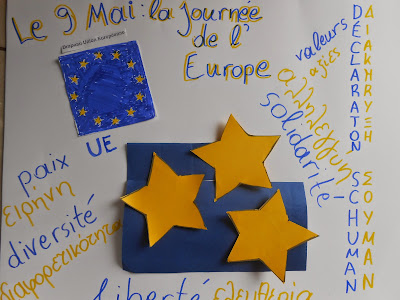 Le 9 Mai : la journée
de l'
Europe
UE
valeurs
αξίες
αλληλεγγύη
solidarité
DÉCLARATON SCHUMAN
ΔΙΑΚΗΡΥΞΗ ΣΟΥΜΑΝ
paix
ειρήνη
diversité
διαφορετικότητα
liberté
ελευθερία